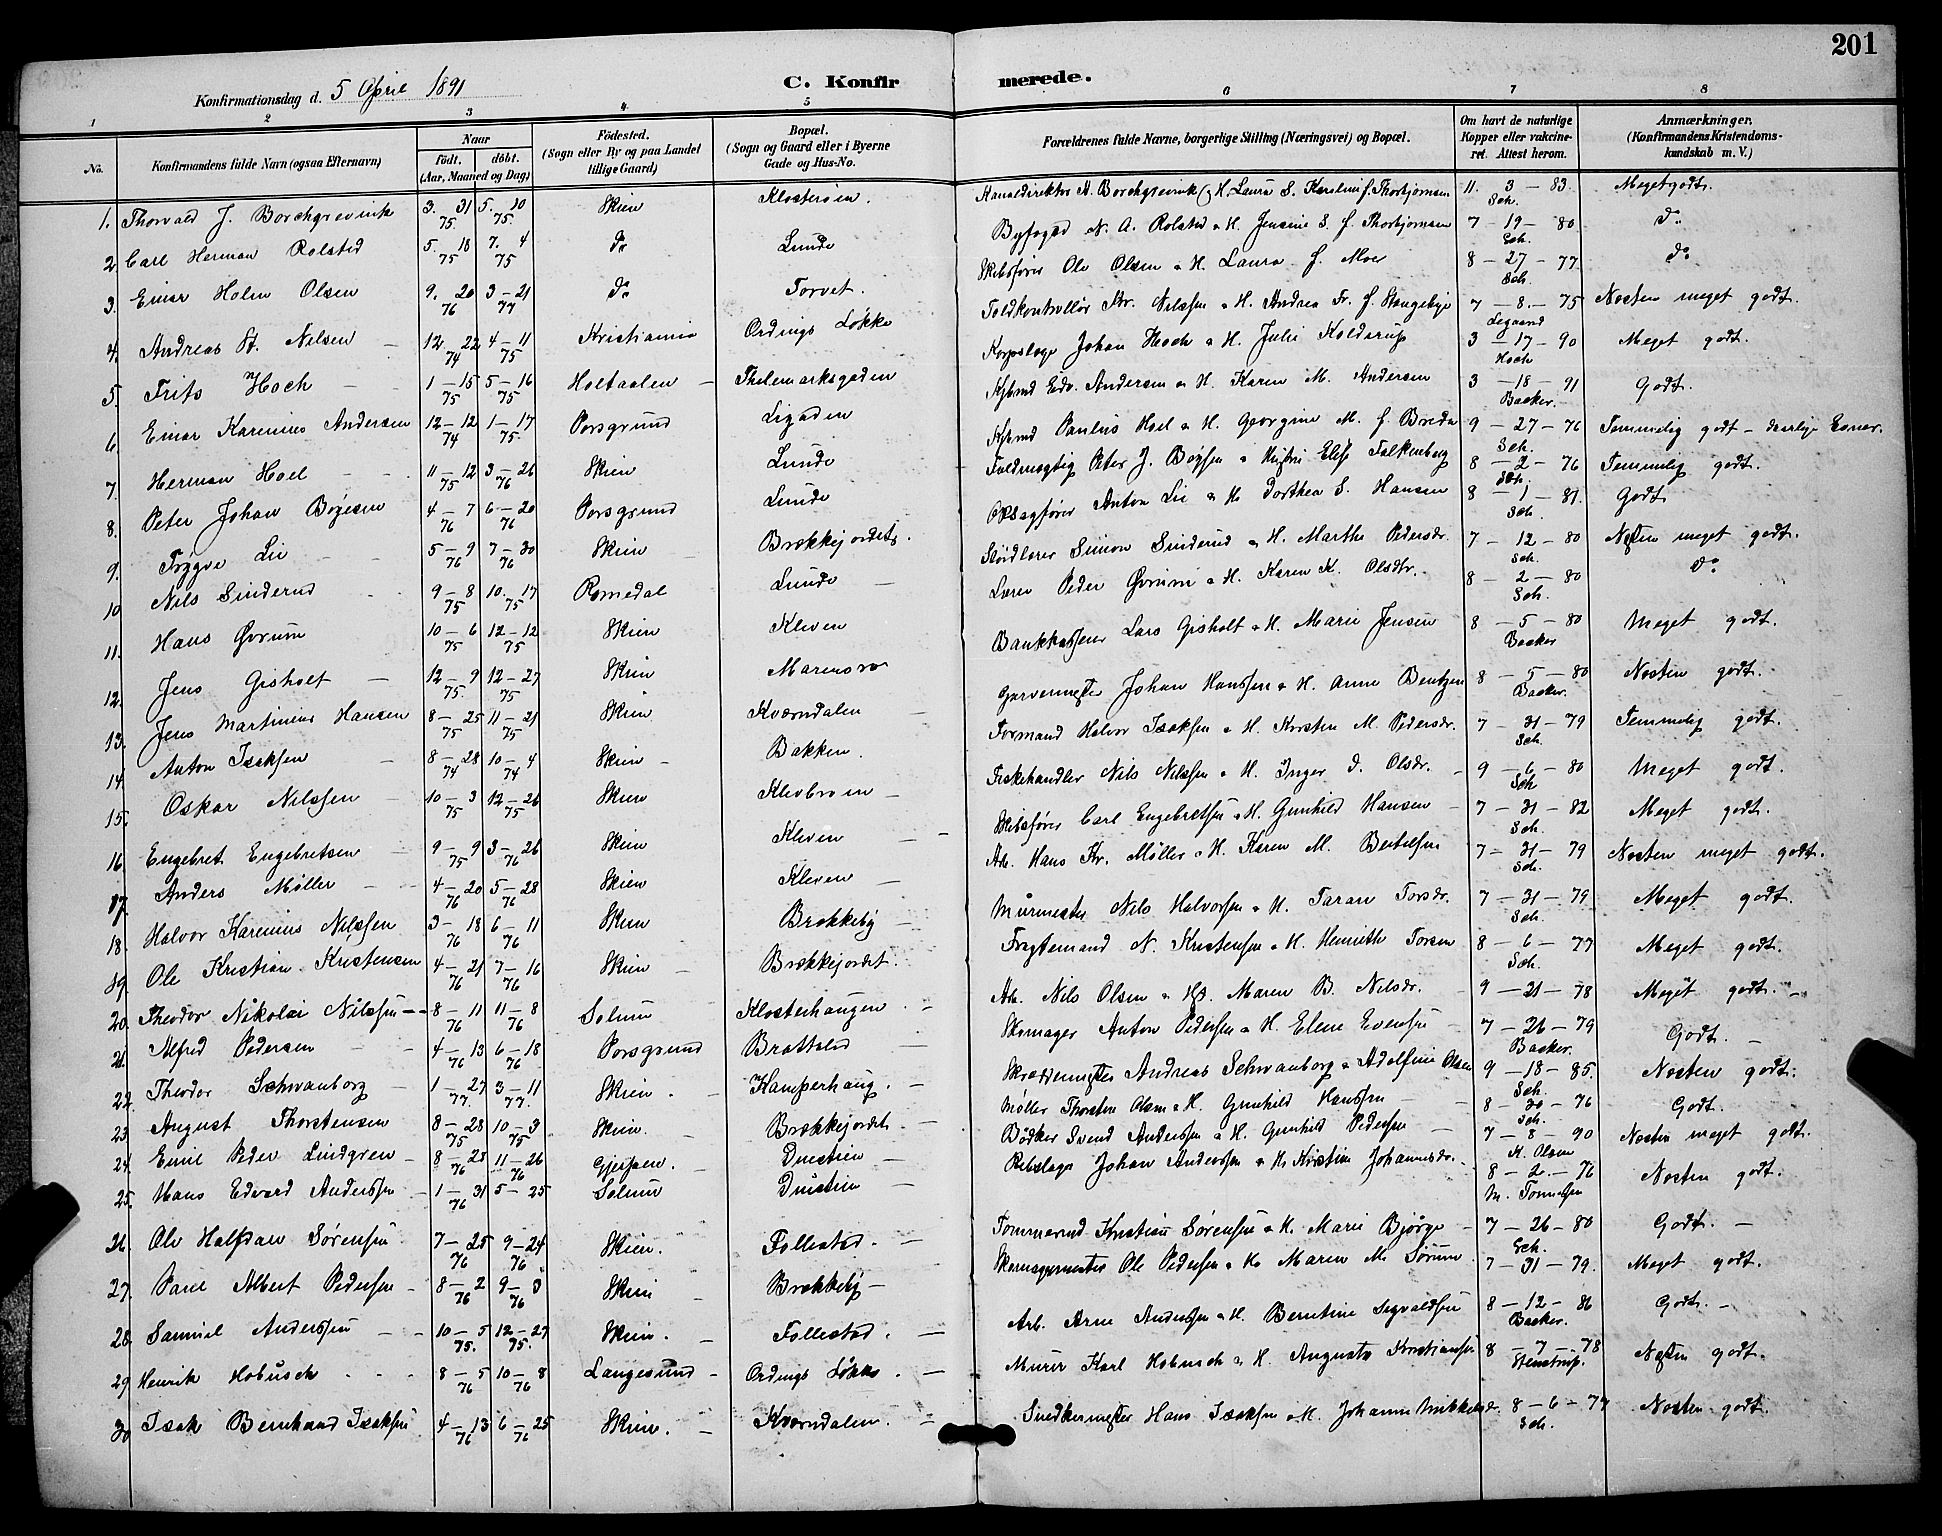 201
C. Konfirmerede.
Konfirmationsdag d. 5 April 1891
1 2 3 4 5 6 7 8
No. Konfirmandens fulde Navn (ogsaa Efternavn) Naar født. døbt. (Aar, Maaned og Dag) Fødested. (Sogn eller By og paa Landet tillige Gaard) Bopæl. (Sogn og Gaard eller i Byerne Gade og Hus-No. Forældrenes fulde Navne, borgerlige Stilling (Næringsvei) og Bopæl. Om havt de naturlige Kopper eller vakcineret. Attest herom. Anmærkninger. (Konfirmandens Kristendomskundskab m. V.)
1. Thorvald J. Borchgrevink 3. 31 75 5. 10 75 Skien Klosterøen. Kanaldirektør A. Borchgrevink H. Laura S. Karoline f. Thorbjørnsen 11. 3 – 83. Sch. Meget godt.
2 Carl Herman Rolsted 5 18 75 7. 4 75 do Lunde Byfoged N. A. Rolsted & H. Jensine S. f. Thorbjørnsen 7 – 19 – 80 Sch. do
3. Einar Holm Olsen 9. 20 76 3 – 21 77 do Torvet. Skibsfører Ole Olsen & H. Laura f. Moe 8 – 27 – 77 Sch. do
4. Andreas St. Nilsen 12. 22 74 4 – 11 75 Kristiania Ordings Løkke Toldkontrollør Kr. Nilssen & H. Andrea Fr. f. Stangebye 7 – 8. – 75 Legaard Næsten meget godt.
5. Frits Hoch 1 – 15 75 5 – 16 75 Holtaalen Thelemarksgaden Korpslæge Johan Hoch & H. Julie Kolderup 3 – 17 – 90 Hoch Meget godt.
6 Einar Karenius Andersen 12 – 12 74 1 – 17 75. Porsgrund Ligaden Kjbmd Edv. Andersen & H. Karen M. Andersen 3 – 18 – 91 Backer. Godt.
7. Herman Hoel 11 – 12 75 3 – 26 76 Skien Lunde Kjbmd Paulus Hoel & H. Georgine M. f. Breda 9 – 27 – 76 Sch. Temmelig godt – daarlige Evner.
8. Peter Johan Bøyesen 4 – 7 76 6 – 20 76 Porsgrund Lunde Fuldmægtig Peter J. Boysen & Hustru Elise Falkenberg 8 – 2 – 76 Sch. Temmelig godt.
9. Trygve Lie 5 – 9 76 7 – 30 76 Skien Brækkejordet. Oksagfører Anton Lie & H. Dorthea S. Hansen 8 – 1 – 81 Sch. Godt
10 Nils Sinderud 9 – 8 75 10. 17 75 Romedal Lunde Sløidlærer Simon Sinderud & H. Marthe Pedersdr. 7 – 12 – 80 Sch. Næsten meget godt.
11. Hans Ørum 10 – 6 75 12 – 12 75 Skien Kleven Lærer Peder Ørum & H. Karen K. Olsdtr. 8 – 2 – 80 Sch. do
12. Jens Gisholt 12 – 9 75 12 – 27 75 Skien Marensro Bankkasserer Lars Gisholt & H. Marie Jensen 8 – 5 – 80 Backer Meget godt.
13. Jens Martinius Hansen 8 – 25 75 11 – 21 75 Skien Kværndalen Garvermester Johan Hanssen & H. Anne Bentzen 8 – 5 – 80 Backer. Næsten godt.
14. Anton Isaksen 8 – 28 74 10 – 4 74 Skien Bakken. Formand Halvor Isaksen & H. Kirsten M. Pedersdr. 7 – 31 – 79 Sch. Temmelig godt.
15. Oskar Nilssen 10 – 3 75 12 – 26 75 Skien Klevbroen Fiskehandler Nils Nilssen & H. Inger D. Olsdr. 9 – 6 – 80 Sch Meget godt.
16 Engebret Engebretsen 9 – 9 75 3 – 26 76 Skien Kleven Skibsfører Carl Engebretsen & H. Gunhild Hansen 7 – 31 – 82 Sch. Meget godt.
17. Anders Møller 4 – 20 76 5 – 28 76 Skien Kleven Arb. Hans Kr. Møller & H. Karen M. Bertelsen 7 – 31 – 79 Sch. Næsten meget godt.
18. Halvor Karenius Nilssen 3 – 18 76 6 – 11 76 Skien Brækkeby Murmester Nils Halvorsen & H. Taran Torsdr. 7 – 31 – 79 Sch. Meget godt.
19. Ole Kristian Kristensen 4 – 21 76 7 – 16 76 Skien Brækkejordet. Fragtemand N. Kristensen & H. Henrikke Torsen 8 – 6 – 77 Sch. Meget godt.
20. Theodor Nikolai Nilssen 8 – 11 76 11 – 8 76 Solum Klosterhaugen Arb. Nils Olsen & H. Maren B. Nilsdr. 9 – 21 – 78 Meget godt.
21. Alfred Pedersen 4 – 13 76 6 – 18 76 Porsgrund Brattelid Skomager Anton Pedersen & H. Elene Evensen 7 – 26 – 79 Backer. Godt.
22. Theodor Schwanborg 1 – 27 77. 3 – 11 77. Skien. Kamperhaug. Skræddermester Andreas Schwanborg & Adolfine Olsen 9 – 18 – 85. Sch. Næsten godt.
23 August Thorstensen 8 – 28 75 10 – 3 75 Skien. Brækkejordet. Møller Thorsten Olsen & H. Gunhild Hanssen 8 – 30 – 76 Sch. Godt.
24. Emil Peder Lindgren 8 – 23 76 11 – 26 76 Gjerpen. Duestien Bødker Svend Anderssen & H. Gunhild Pedersen 7 – 8 – 90 K. Olsen Næsten meget godt.
25. Hans Edvard Anderssen 1 – 31 76 5 – 25 Solum Duestien Rebslager Johan Anderssen & H. Kristine Johannesdr. 8 – 2 – 76 M. Tønnessen Næsten godt.
26. Ole Halfdan Sørensen 7 – 25 76 9 – 24 76 Skien. Follestad. Tømmermd Kristian Sørensen & H. Marie Bjørge 7 – 26 – 80 Sch. Godt.
27. Paul Albert Pedersen 8 – 2 76 9 – 3 76 Skien Brækkeby Skomagermester Ole Pedersen & H. Maren M. Sørum 7 – 31 – 79. Meget godt.
28. Samuel Anderssen 10 – 5 75. 12 – 27 75. Skien. Follestad. Arb. Arne Anderssen & H. Berntine Segvaldsen 8 – 12 – 86 Backer. Godt.
29 Henrik Hobusch 8 – 5 76 10 – 8 76 Langesund Ordings Løkke. Murer Karl Hobusch & H. Augusta Kristiansen 8 – 7 – 78 Stenstrup. Næsten godt.
30 Isak Bernhard Isaksen 4 – 13 76 6 – 25 76 Skien. Kværndalen. Snedkermester Hans Isaksen & H. Johanne Mikkelsdr. 8 – 6 – 77 Sch. Næsten godt.